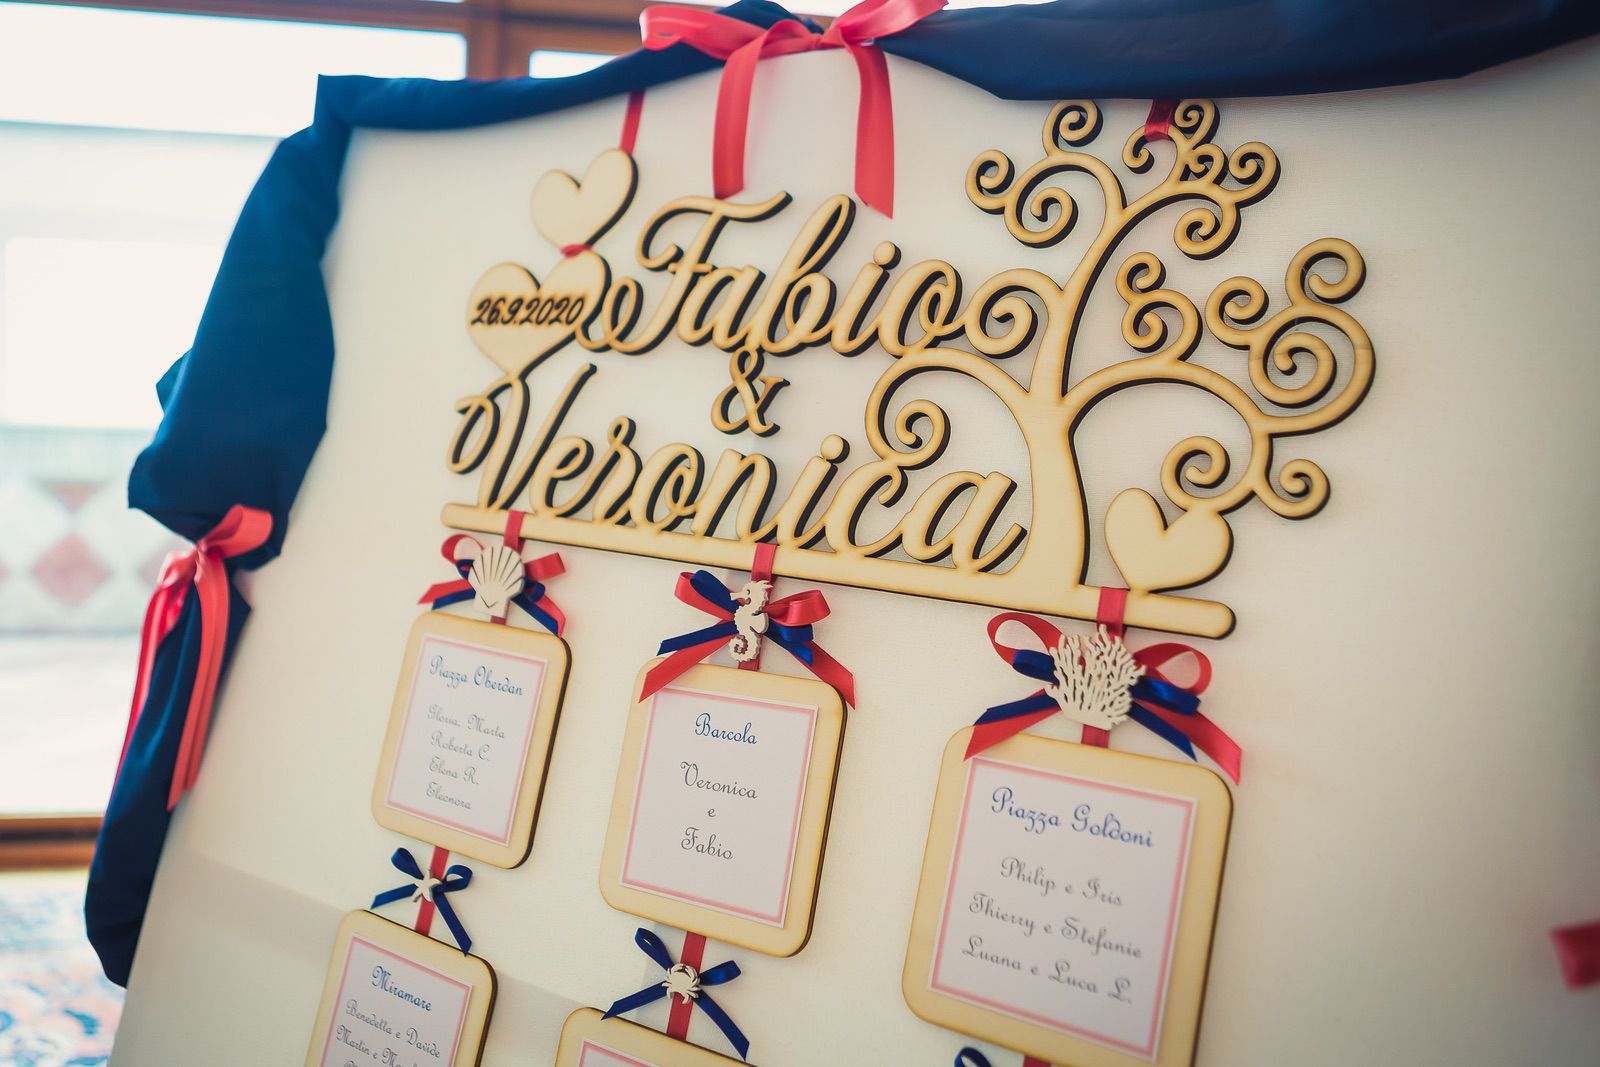 26.9.2020
Fabio
&
Veronica
Piazza Oberdan
Gloria, Marta
Roberta C.
Elena R.
Eleonora
Barcola
Veronica
e
Fabio
Piazza Goldoni
Philip e Iris
Thierry e Stefanie
Luana e Luca L.
Miramare
Benedetta e Davide
Martin e